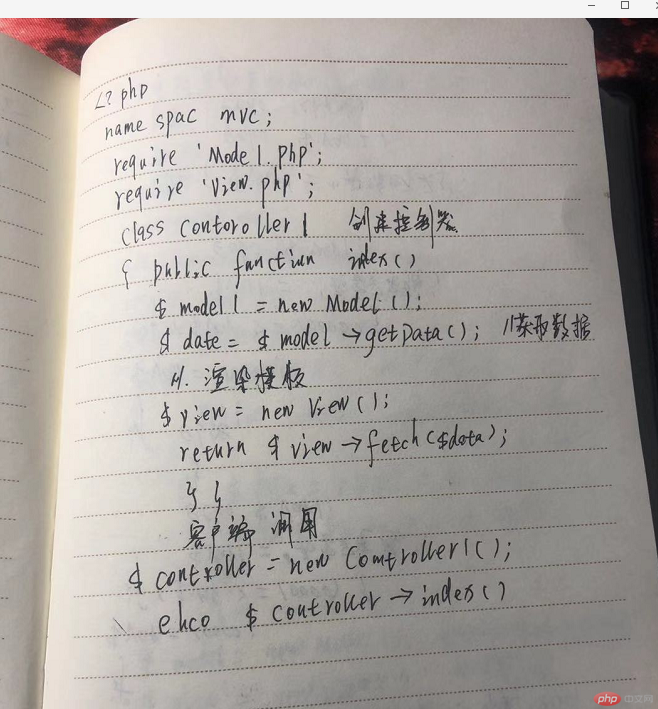 <?php
namespac mvc;
require 'Model.php';
require 'View.php';
class Contoroller1 创建控制器
{ public function index()
$ model1 = new Model();
$ date = $ model →getData(); //获取数据
//. 渲染模板
$ view = new View();
return $ view →fetch($data);
} }
客户端 调用
$ controller = new Comtroller1();
ehco $ controller → index()
php 中文网